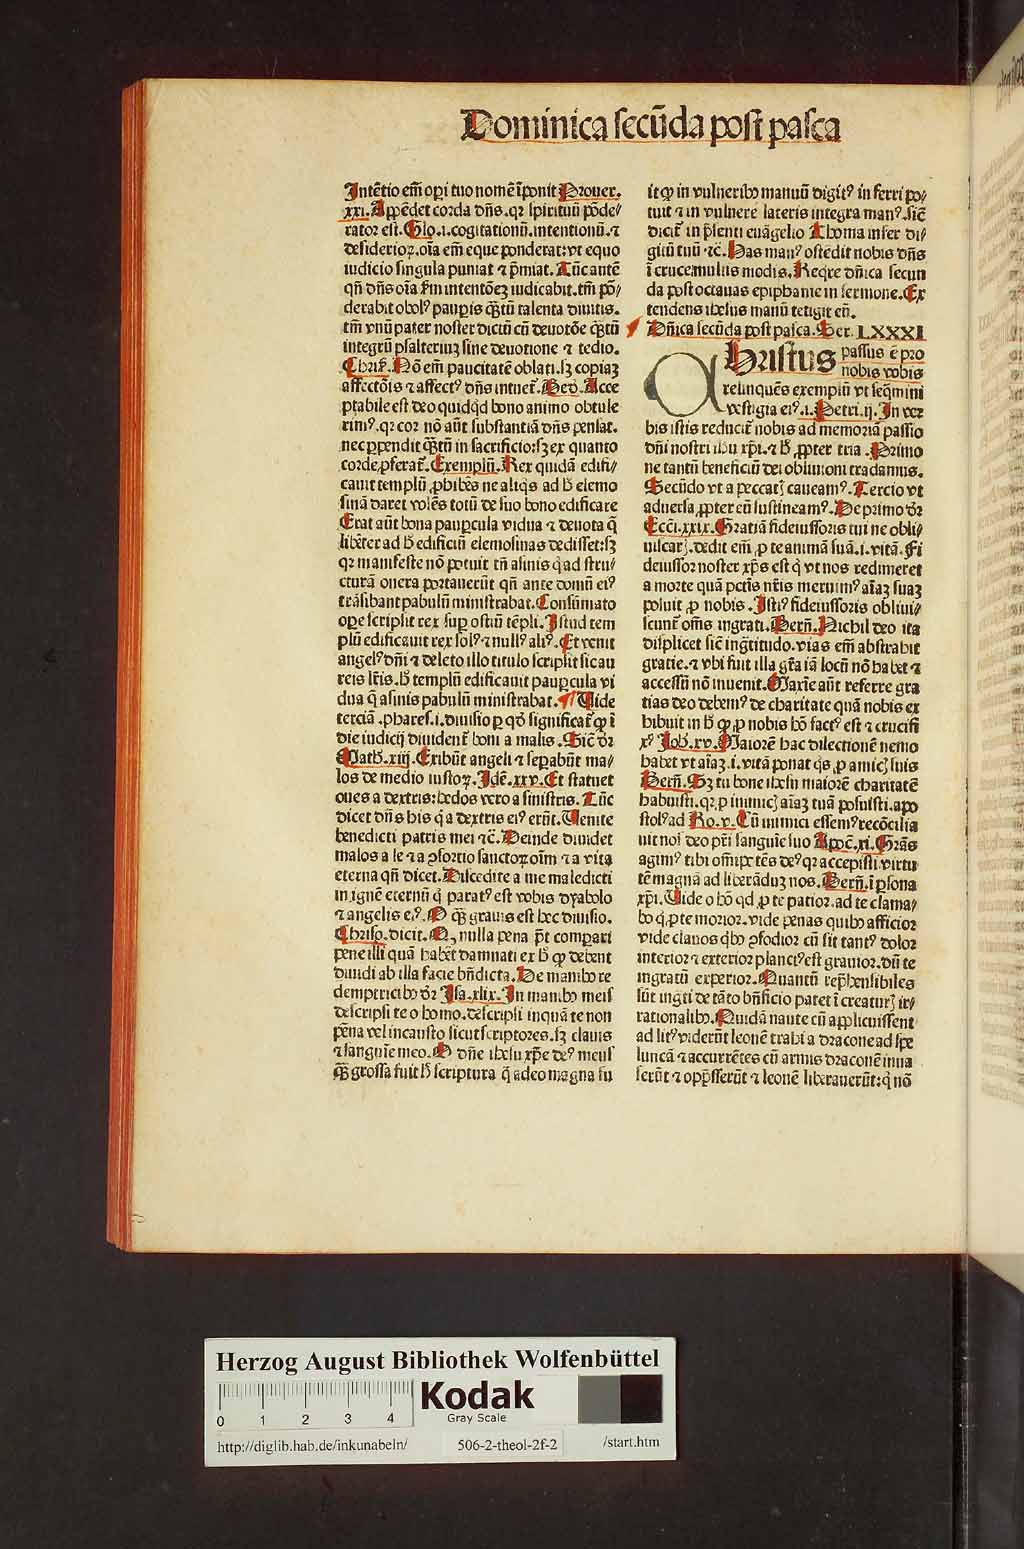 Dominica secūda post pasca
Intētio em̄ oꝑi tuo nomē īponit Prouer.
xxi. Appēdet corda dn̄s. qꝛ spirituū pōde/
rator est. Glo. i. cogitationū. intentionū. ⁊
desideriorꝝ. oīa em̄ eque ponderat: vt equo
iudicio singula puniat ⁊ p̄miat. Tūc autē
qn̄ dn̄s oīa ẜm intentōeꝫ iudicabit. tm̄ pō/
derabit obolꝰ pauꝑis qȝ̄tū talenta diuitis.
tm̄ vnū pater noster dictū cū deuotōe qȝ̄tū
integrū psalteriuꝫ sine deuotione ⁊ tedio.
Chriꝭ. Nō em̄ paucitatē oblati. sꝫ copiaꝫ
affectōis ⁊ affectꝰ dn̄s intuet᷑. Bed. Acce
ptabile est deo quidqd bono animo obtule
rimꝰ. qꝛ cor nō aūt substantiā dn̄s pensat.
nec ꝑpendit qȝ̄tū in sacrificio: sꝫ ex quanto
corde ꝓferat᷑. Exemplū. Rex quidā edifi/
cauit templū ꝓhibēs ne aliqs ad ħ elemo
sinā daret volēs totū de suo bono edificare
Erat aūt bona pauꝑcula vidua ⁊ deuota q̄
libēter ad ħ edificiū elemosinas dedisset: sꝫ
qꝛ manifeste nō potuit tn̄ asinis q ad stru/
cturā onera portauerūt qn̄ ante domū eiꝰ
trāsibant pabulū ministrabat. Consūmato
oꝑe scripsit rex suꝑ ostiū tēpli. Istud tem
plū edificauit rex solꝰ ⁊ nullꝰ aliꝰ. Et venit
angelꝰ dn̄i ⁊ deleto illo titulo scripsit sic au
reis lr̄is. ħ templū edificauit pauꝑcula vi
dua q̄ asinis pabulū ministrabat. ¶ Vide
terciā. phares. i. diuisio ꝑ qd̓ significat᷑ ꝙ ī
die iudicij diuident᷑ boni a malis. Sic̄ dr̄
Math. xiij. Exibūt angeli ⁊ seꝑabūt ma/
los de medio iustorꝝ. Idē. xxv. Et statuet
oues a dextris: hedos vero a sinistris. Tūc
dicet dn̄s his q a dextris eiꝰ erūt. Uenite
benedicti patris mei ⁊c̄. Deinde diuidet
malos a se ⁊ a ꝯsortio sanctorꝝ oīm ⁊ a vita
eterna qn̄ dicet. Discedite a me maledicti
in ignē eternū q paratꝰ est vobis dyabolo
⁊ angelis eiꝰ. O qȝ̄ grauis est hec diuisio.
Chriso. dicit. Q, nulla pena p̄t compari
pene illi quā habēt damnati ex ħ ꝙ debent
diuidi ab illa facie bn̄dicta. De manibꝰ re
demptricibꝰ dr̄ Isa. xlix. In manibꝰ meis
descripsi te o homo. descripsi inquā te non
pēna vel incausto sicut scriptores. sꝫ clauis
⁊ sanguīe meo. O dn̄e ihesu xp̄e deꝰ meus
qȝ̄ grossa fuit ħ scriptura q̄ adeo magna fu
it ꝙ in vulneribꝰ manuū digitꝰ inferri po/
tuit ⁊ in vulnere lateris integra manꝰ. sic̄
dicit᷑ in p̄senti euāgelio Thoma infer di/
gitū tuū ⁊c̄. Has manꝰ ostēdit nobis dn̄s
ī cruce multis modis. Reqre dn̄ica secun
da post octauas epiphanie in sermone. Ex
tendens ihesus manū tetigit eū.
Dn̄ica secūda post pasca. Ser. LXXXI
Christus passus ē pro
nobis vobis
relinquēs exemplū vt seq̄mini
vestigia eiꝰ. i. Petri. ij. In ver
bis istis reducit᷑ nobis ad memoriā passio
dn̄i nostri ihu xp̄i. ⁊ ħ ꝓpter tria. Primo
ne tantū beneficiū dei obliuioni tradamus.
Secūdo vt a peccatꝭ caueamꝰ. Tercio vt
aduersa ꝓpter eū sustineamꝰ. De primo dr̄
Ecci. xxix. Gratiā fideiussoris tui ne obli/
uiscarꝭ. dedit em̄ ꝓ te animā suā. i. vitā. Fi
deiussor noster xp̄s est q vt nos redimeret
a morte quā pctīs nr̄is meruimꝰ aīaꝫ suaꝫ
posuit ꝓ nobis. Istiꝰ fideiussoris obliui/
scunt᷑ oēs ingrati. Bern̄. Nichil deo ita
displicet sic̄ ingr̄titudo. vias em̄ abstrahit
gratie. ⁊ vbi fuit illa gr̄a iā locū nō habet ⁊
accessū nō inuenit. Maxīe aūt referre gra
tias deo debemꝰ de charitate quā nobis ex
hibuit in ħ ꝙ ꝓ nobis hō factꝰ est ⁊ crucifi
xꝰ Joh. xv. Maiorē hac dilectionē nemo
habet vt aīaꝫ. i. vitā ponat qs ꝓ amicꝭ suis
Bern̄. Sꝫ tu bone ihesu maiorē charitatē
habuisti. qꝛ ꝓ inimicꝭ aīaꝫ tuā posuisti. apo
stolꝰ ad Ro. v. Cū inimici essemꝰ recōcilia
uit nos deo pr̄i sanguīe suo Appoc̄. xi. Grās
agimꝰ tibi om̄ipotēs deꝰ qꝛ accepisti virtu
tē magnā ad liberāduꝫ nos. Bern̄. ī ꝑsona
xp̄i. Uide o hō qd ꝓ te patior. ad te clama/
bo q ꝓ te morior. vide penas quibꝰ afficior
vide clauos qbꝰ ꝯfodior cū sit tantꝰ dolor
interior ⁊ exterior planctꝰ est grauior. dū te
ingratū experior. Quantū rep̄hensibiles
sūt ingr̄ti de tāto bn̄ficio patet ī creaturꝭ ir/
rationalibꝰ. Quidā naute cū applicuissent
ad litꝰ viderūt leonē trahi a dracone ad spe
luncā ⁊ accurrētes cū armis draconē inua
serūt ⁊ opp̄sserūt ⁊ leonē liberauerūt: q nō
Herzog August Bibliothek Wolfenbüttel
Kodak
Gray Scale
0 1 2 3 4
http://diglib.hab.de/inkunabeln/ 506-2-theol-2f-2 /start.htm